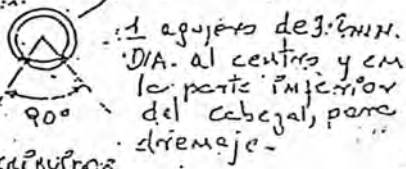 1 agujero de 3. mm.
DIA. al centro y en
la parte inferior
del cabezal, para
drenaje.-
90°